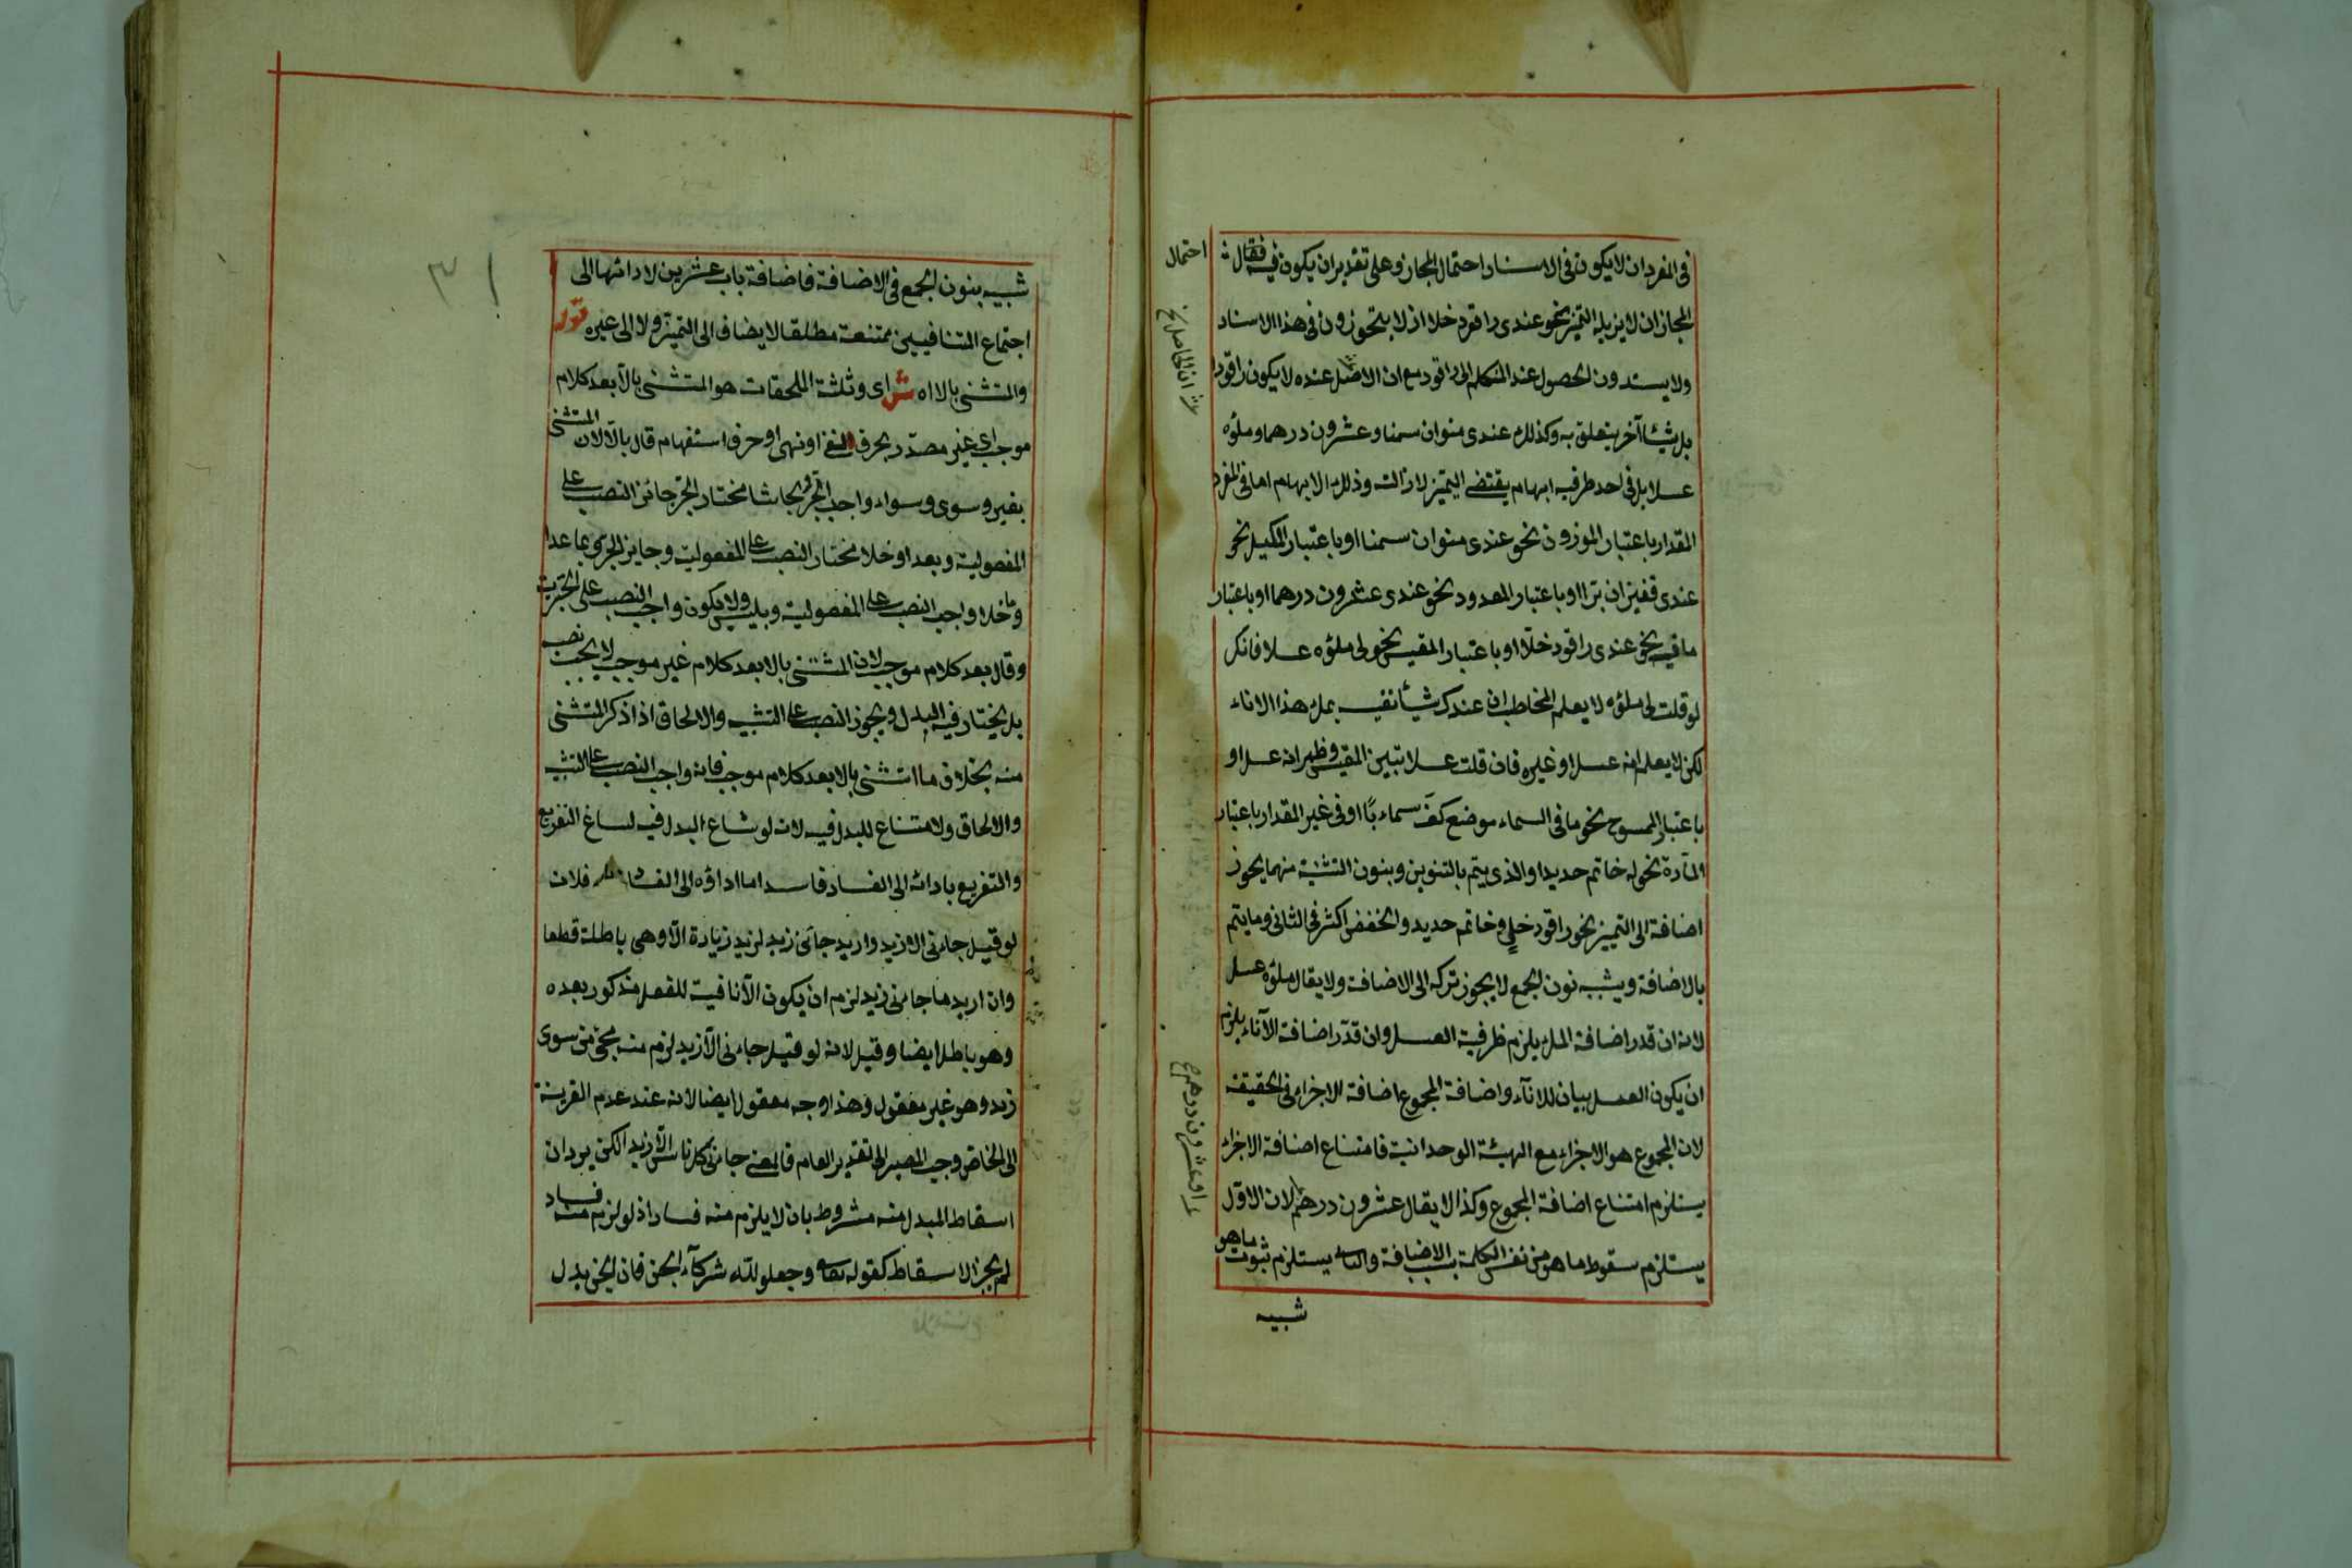 فى المفرد ان لا يكون فى الاسناد احتمال المجاز وعلى تقدير ان يكون فيه فقال
احتمال
المجاز ان لا يزيله التميز نحو عندى راقود خلا اذ لا يتجوزون فى هذا الاسناد
ولا يسندون الحصول عند المتكلم الى راقود مع ان الاصل عنده لا يكون راقودا
بل شيئا آخر يتعلق به وكذلك عندى منوان سمنا وعشرون درهما وملؤه
عسلا بل فى احد طرفيه ابهام يقتضى التميز لازالته وذلك الابهام اما فى المفرد
المقدار باعتبار الموزون نحو عندى منوان سمنا او باعتبار المكيل نحو
عندى قفيزان برا او باعتبار المعدود نحو عندى عشرون درهما او باعتبار
ما فيه نحو عندى راقود خلا او باعتبار المقيس نحو لى ملؤه عسلا فانك
لو قلت لى ملؤه لا يعلم المخاطب ان عندك شيئا نفيسه بملء هذا الاناء
لكن لا يعلم انه عسل او غيره فان قلت عسلا تبين المقيس وظهر انه عسل او
باعتبار الممسوح نحو ما فى السماء موضع كف سماء با او فى غير المقدار باعتبار
المادة نحو له خاتم حديدا والذى يتم بالتنوين وبنون التثنية منهما يجوز
اضافة الى التميز نحو راقود خل وخاتم حديد والخفض اكثر فى الثانى وما يتم
بالاضافة ويشبه نون الجمع لا يجوز تركه الى الاضافة ولا يقال ملؤه عسل
لانه ان قدر اضافة الملء يلزم ظرفية العسل وان قدر اضافة الاناء يلزم
ان يكون العسل بيان للاناء واضافة المجموع اضافة الاجزاء فى الحقيقة
لان المجموع هو الاجزاء مع الهيئة الوحدانية فامتناع اضافة الاجزاء
يستلزم امتناع اضافة المجموع وكذا لا يقال عشرون درهم لان الاول
يستلزم سقوط ما هو من نفس الكلمة بسبب الاضافة والثانى يستلزم ثبوت ما هو
شبيه
شبيه بنون الجمع فى الاضافة فاضافة باب عشرين لادائها الى
اجتماع المتنافيين ممتنعة مطلقا لا يضاف الى التميز ولا الى غيره قوله
والمستثنى بالا اه ش اى وثلثة الملحقات هو المستثنى بالا بعد كلام
موجب اى غير مصدر بحرف النفى او نهى او حرف استفهام قال بالا لان المستثنى
بغير وسوى وسواء واجب الجر وبحاشا مختار الجر جائز النصب على
المفعولية وبعدا وخلا مختار النصب على المفعولية وجايز الجر وبما عدا
وما خلا واجب النصب على المفعولية وبليس ولا يكون واجب النصب على الخبرية
وقال بعد كلام موجب لان المستثنى بالا بعد كلام غير موجب لا يجب نصبه
بل يختار فيه البدل ويجوز النصب على التشبيه والالحاق اذا ذكر المستثنى
منه بخلاف ما استثنى بالا بعد كلام موجب فانه واجب النصب على التشبيه
والالحاق ولامتناع للبدل فيه لانه لو شاع البدل فيه لساغ التفريع
والتفريع بادائه الى الفساد فاسد اما اداؤه الى الفساد فلانه
لو قيل جاءنى الا زيد واريد جاءنى زيد لزيد زيادة الا وهى باطلة قطعا
وان اريد ما جاءنى زيد لزم ان يكون الا نافية للفعل مذكور بعده
وهو باطل ايضا وقيل لانه لو قيل جاءنى الا زيد لزم منه مجئ من سوى
زيد وهو غير معقول وهذا وجه معقول ايضا لانه عند عدم القرينة
الى الخاص وجب المصير الى تقدير العام فالمعنى جاءنى كل ناس الا زيد الكن يرد ان
اسقاط المبدل منه مشروط بان لا يلزم منه فساد اذ لو لزم منه فساد
لم يجز الاسقاط كقوله تعالى وجعلوا لله شركاء الجن فان الجن بدل